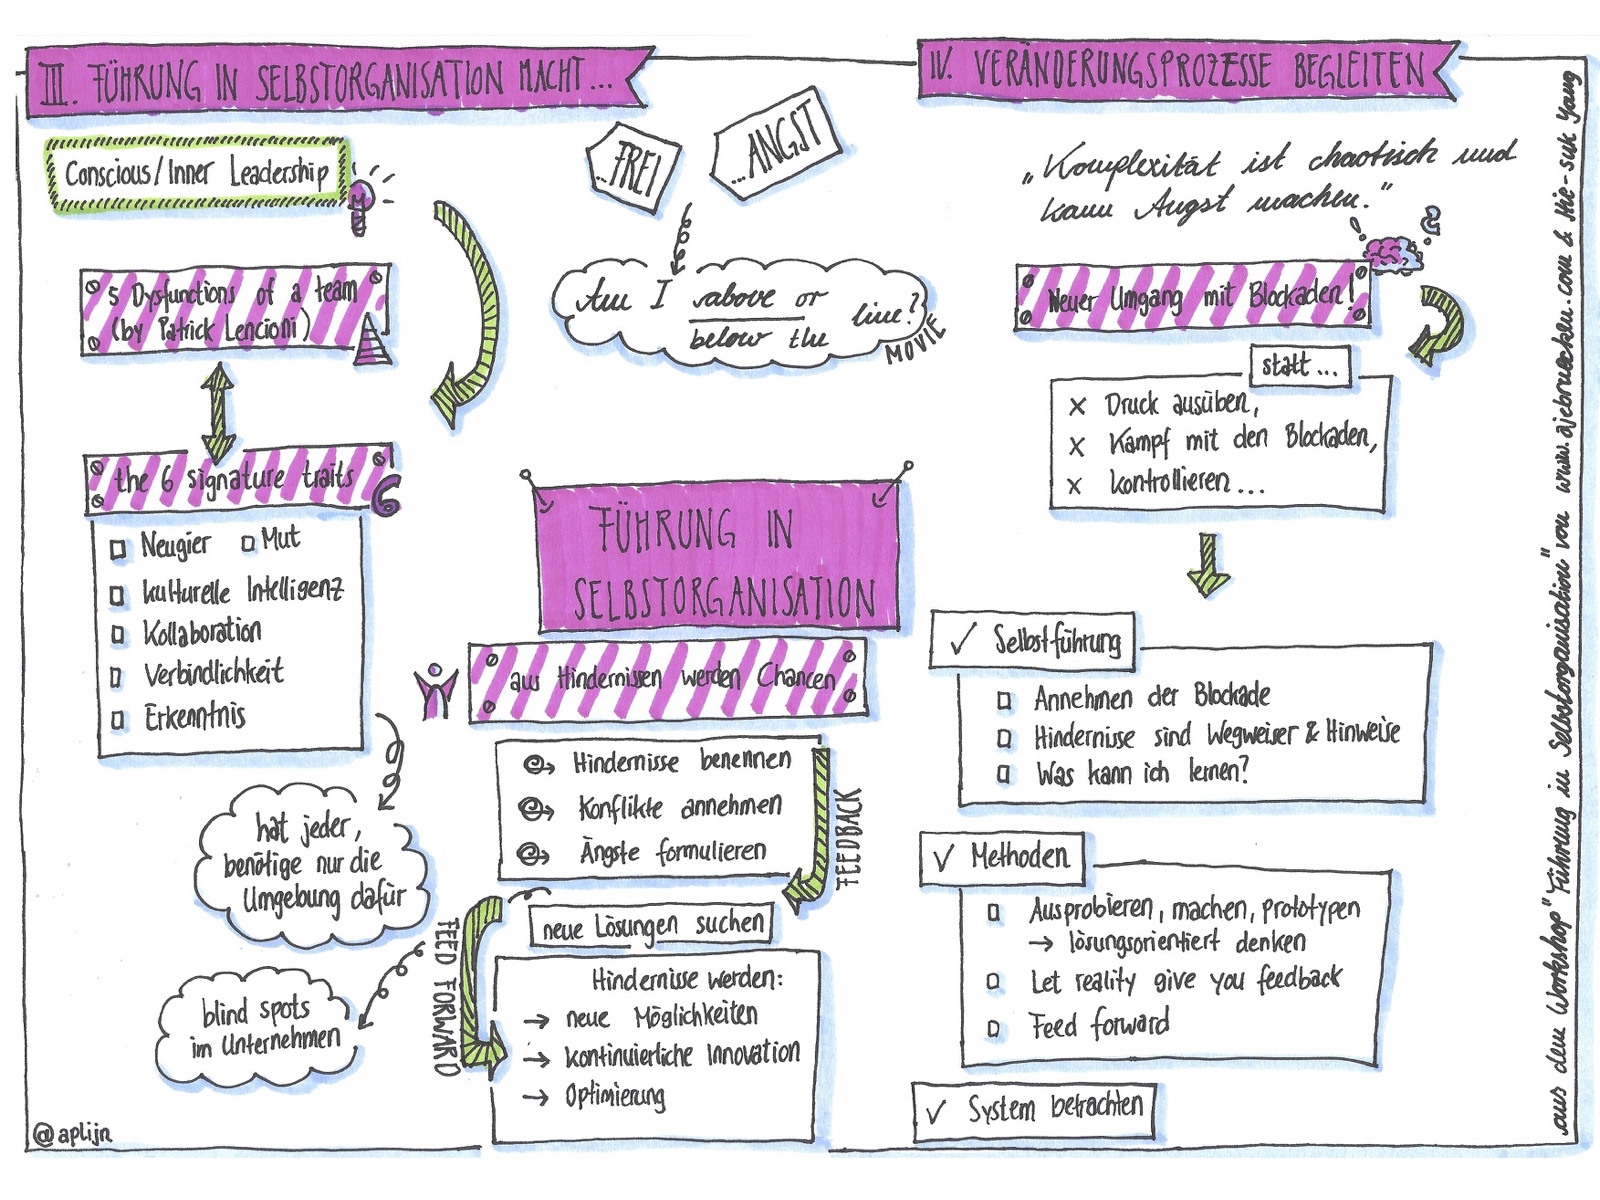 III. FÜHRUNG IN SELBSTORGANISATION MACHT...
Conscious/Inner Leadership
...FREI
...ANGST
Am I above or
below the
line?
MOVIE
5 Dysfunctions of a team
(by Patrick Lencioni)
the 6 signature traits
6
Neugier
Mut
kulturelle Intelligenz
Kollaboration
Verbindlichkeit
Erkenntnis
hat jeder,
benötige nur die
Umgebung dafür
blind spots
im Unternehmen
@aplijn
FÜHRUNG IN
SELBSTORGANISATION
aus Hindernissen werden Chancen
Hindernisse benennen
Konflikte annehmen
Ängste formulieren
FEEDBACK
neue Lösungen suchen
FEED FORWARD
Hindernisse werden:
→ neue Möglichkeiten
→ kontinuierliche Innovation
→ Optimierung
IV. VERÄNDERUNGSPROZESSE BEGLEITEN
„Komplexität ist chaotisch und
kann Angst machen."
! ?
Neuer Umgang mit Blockaden!
statt...
x Druck ausüben,
x Kampf mit den Blockaden,
x kontrollieren...
✓ Selbstführung
Annehmen der Blockade
Hindernisse sind Wegweiser & Hinweise
Was kann ich lernen?
✓ Methoden
Ausprobieren, machen, prototypen
→ lösungsorientiert denken
Let reality give you feedback
Feed forward
✓ System betrachten
aus dem Workshop "Führung in Selbstorganisation" von www.ajebruecken.com & Hie-suk Yang